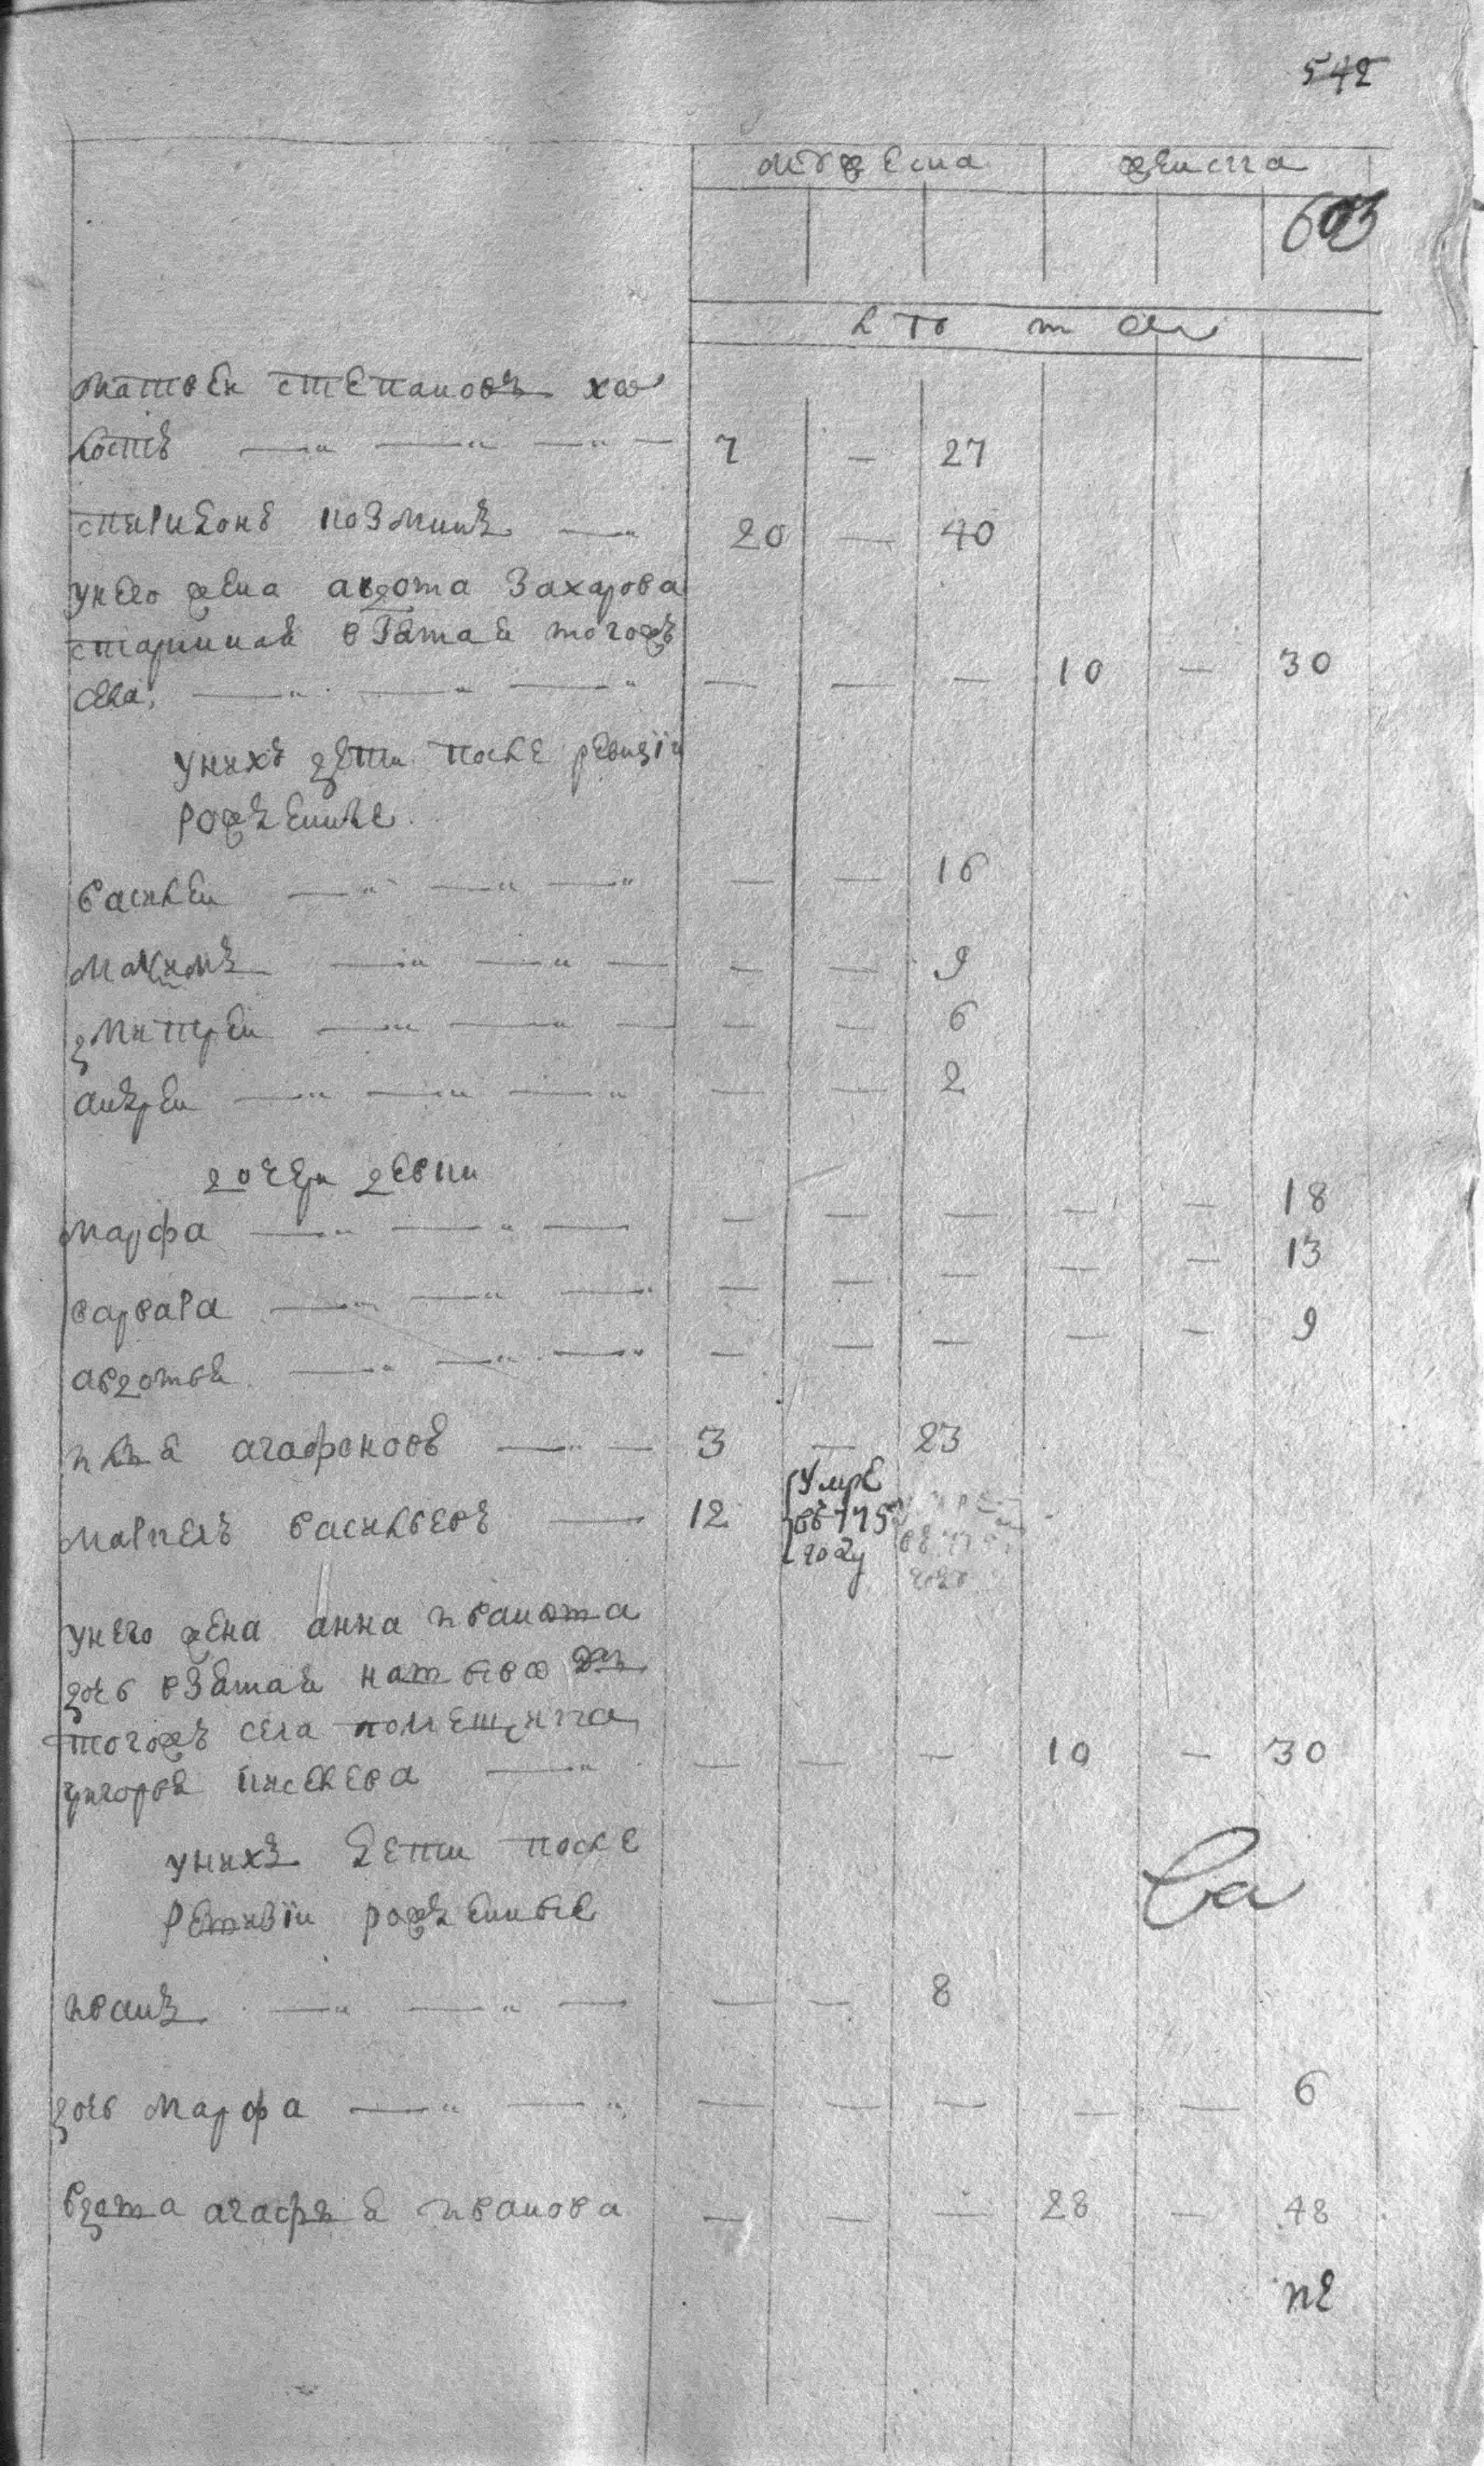 542
мужеска женска
603
лет
матвеи степановъ хо
лостъ 7 — 27
спиридонъ козминъ — 20 — 40
унего жена авдота захарова
стариннаѧ взѧтаѧ тогожъ
села — — — — 10 — 30
унихъ дети после ревизїи
рожденные
василеи — — — — 16
максимъ — — — — 9
дмитреи — — — — 6
андреи — — — — 2
дочери девки
марфа — — — — — — 18
варвара — — — — — — 13
авдотьѧ — — — — — — 9
илья агафоновъ — — 3 — 23
маркелъ васильевъ — 12 умре
въ 775
году
унего жена анна иванова
дочь взѧтаѧ
тогожъ села помещика
григорьѧ киселева — — — — 10 — 30
унихъ дети после
ревизїи рожденные
ва
иванъ — — — — — 8
дочь марфа — — — — — — — 6
вдова агафья иванова — — — 28 — 48
не